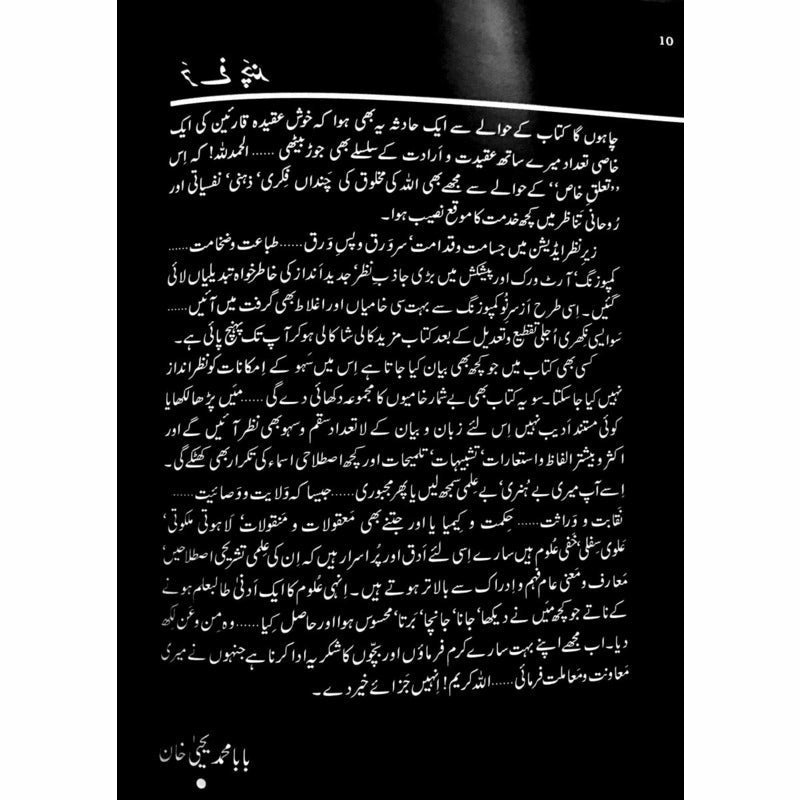 10
چاہوں گا کتاب کے حوالے سے ایک حادثہ یہ بھی ہوا کہ خوش عقیدہ قارئین کی ایک
خاصی تعداد میرے ساتھ عقیدت و اَرادت کے سلسلے بھی جوڑ بیٹھی ...... الحمدللہ! کہ اِس
’’تعلقِ خاص‘‘ کے حوالے سے مجھے بھی اللہ کی مخلوق کی چنداں فِکری‘ ذہنی‘ نفسیاتی اور
رُوحانی تناظر میں کچھ خدمت کا موقع نصیب ہوا۔
زیرِ نظر ایڈیشن میں جسامت و قدامت‘ سرورق و پسِ وَرق ...... طباعت و ضخامت ......
کمپوزنگ‘ آرٹ ورک اور پیشکش میں بڑی جاذبِ نظر‘ جدید اَنداز کی خاطر خواہ تبدیلیاں لائی
گئیں۔ اِسی طرح اَز سرِ نُو کمپوزنگ سے بہت سی خامیاں اور اغلاط بھی گرفت میں آئیں ......
سَو ایسی نِکھری اُجلی تقطیع و تعدیل کے بعد کتاب مزید کالی شا کالی ہو کر آپ تک پہنچ پائی ہے۔
کسی بھی کتاب میں جو کچھ بھی بیان کیا جاتا ہے اِس میں سَہو کے اِمکانات کو نظر انداز
نہیں کیا جا سکتا۔ سو یہ کتاب بھی بے شمار خامیوں کا مجموعہ دکھائی دے گی ...... میَں پڑھا لکھا یا
کوئی مستند اَدیب نہیں اِس لئے زبان و بیان کے لاتعداد سقم و سہو بھی نظر آئیں گے اور
اکثر و بیشتر الفاظ و استعارات‘ تشبیہات‘ تلمیحات اور کچھ اصطلاحی اسماء کی تکرار بھی کھٹکے گی۔
اِسے آپ میری بے ہُنری‘ بے علمی سمجھ لیں یا پھر مجبوری ...... جیسا کہ وَلایت و وَصائیت ......
نَقابت و وَراثت ...... حِکمت و کیمیا یا اور جتنے بھی مَعقولات و مَنقولات‘ لَاہوتی ملکوتی‘
عَلوی سِفلی‘ خَفی عُلوم ہیں سارے اِسی لئے اَدق اور پُراسرار ہیں کہ اِن کی عِلمی تشریحی اصطلاحیں‘
مَعارف و مَعنی عام فہم و اِدراک سے بالاتر ہوتے ہیں۔ اِنہی عُلوم کا ایک اَدنیٰ طالبعلم ہونے
کے ناتے جو کچھ میَں نے دیکھا‘ جانا‘ جانچا‘ بَرتا‘ محسوس ہوا اور حاصل کِیا ...... وہ مِن و عَن لکھ
دیا۔ اب مجھے اپنے بہت سارے کرم فرماؤں اور بچّوں کا شکریہ ادا کرنا ہے جنہوں نے میری
مَعاونت و مَعاملت فرمائی ...... اللہ کریم! اِنہیں جَزائے خیر دے۔
بابا محمد یحییٰ خان